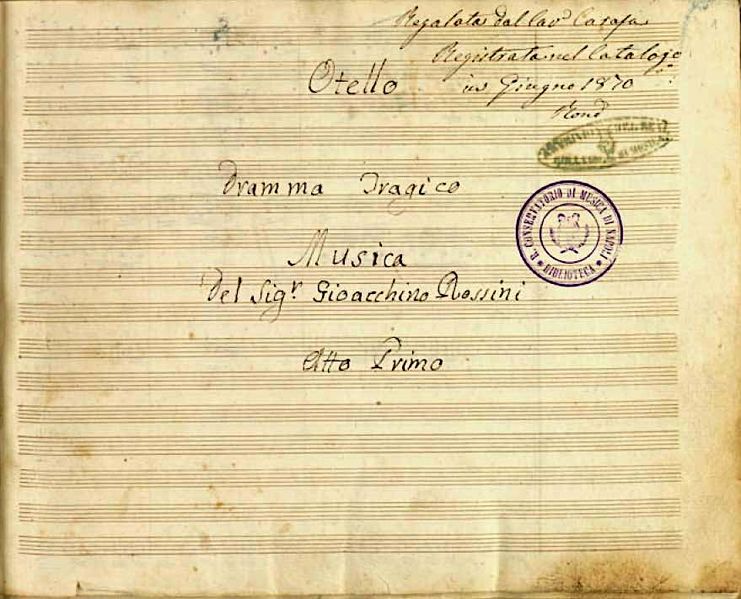 Regalata dal Cav.e Carafa
Registrata nel Catalogo
Otello
in Giugno 1870
Rond
Dramma Tragico
R. CONSERVATORIO DI MUSICA DI NAPOLI
BIBLIOTECA
Musica
Del Sig.r Gioacchino Rossini
Atto Primo